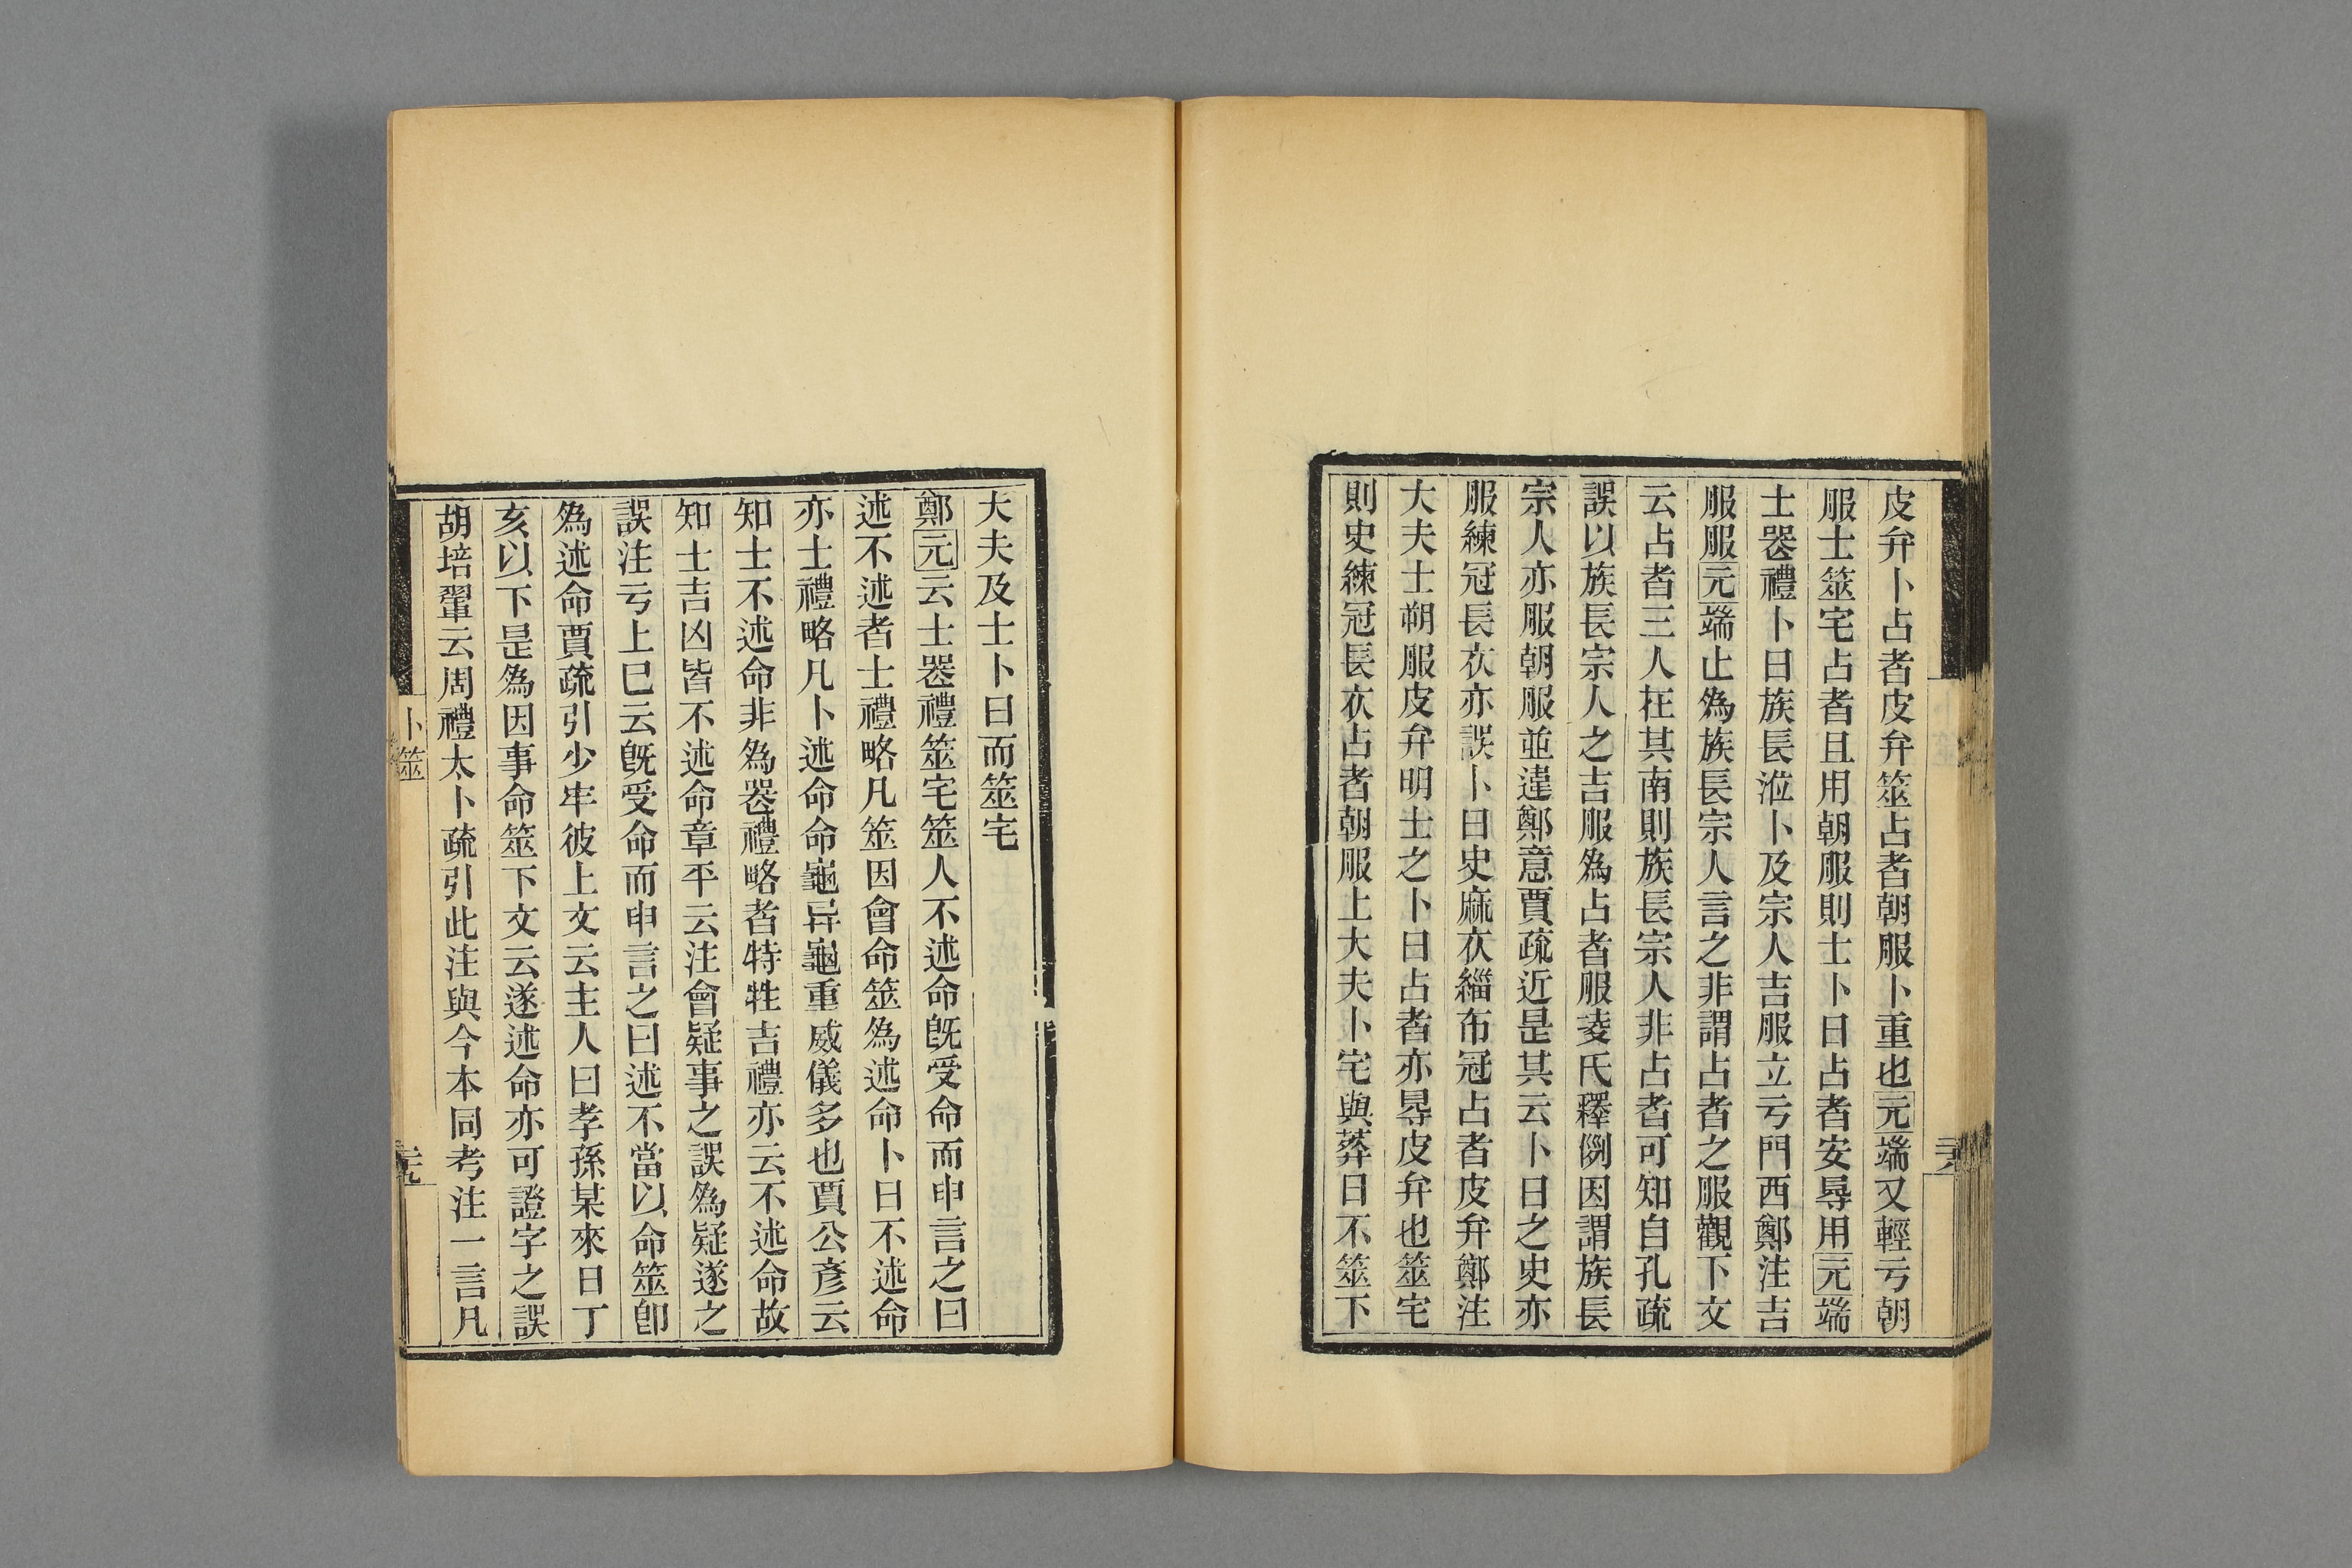 皮弁卜占者皮弁筮占者朝服卜重也元端又輕亏朝
服士筮宅占者且用朝服則士卜日占者安㝵用元端
士䘮禮卜日族長涖卜及宗人吉服立亏門西鄭注吉
服服元端止為族長宗人言之非謂占者之服觀下文
云占者三人在其南則族長宗人非占者可知自孔疏
誤以族長宗人之吉服為占者服淩氏釋例因謂族長
宗人亦服朝服並違鄭意賈疏近是其云卜日之史亦
服練冠長衣亦誤卜日史麻衣緇布冠占者皮弁鄭注
大夫士朔服皮弁明士之卜日占者亦㝵皮弁也筮宅
則史練冠長衣占者朝服上大夫卜宅與葬日不筮下
大夫及士卜日而筮宅
鄭元云士䘮禮筮宅筮人不述命旣受命而申言之曰
述不述者士禮略凡筮因會命筮為述命卜日不述命
亦士禮略凡卜述命命龜异龜重威儀多也賈公彥云
知士不述命非為䘮禮略者特牲吉禮亦云不述命故
知士吉凶皆不述命章平云注會疑事之誤為疑遂之
誤注亏上巳云旣受命而申言之曰述不當以命筮卽
為述命賈疏引少牢彼上文云主人曰孝孫某來日丁
亥以下是為因事命筮下文云遂述命亦可證字之誤
胡培翬云周禮太卜疏引此注與今本同考注一言凡
卜筮
二十九